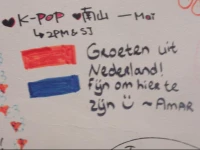 ♥K-POP ♥南山 — Mai
↳2PM & SJ
Groeten uit
Nederland!
Fijn om hier te
zijn ☺ ~ Amar